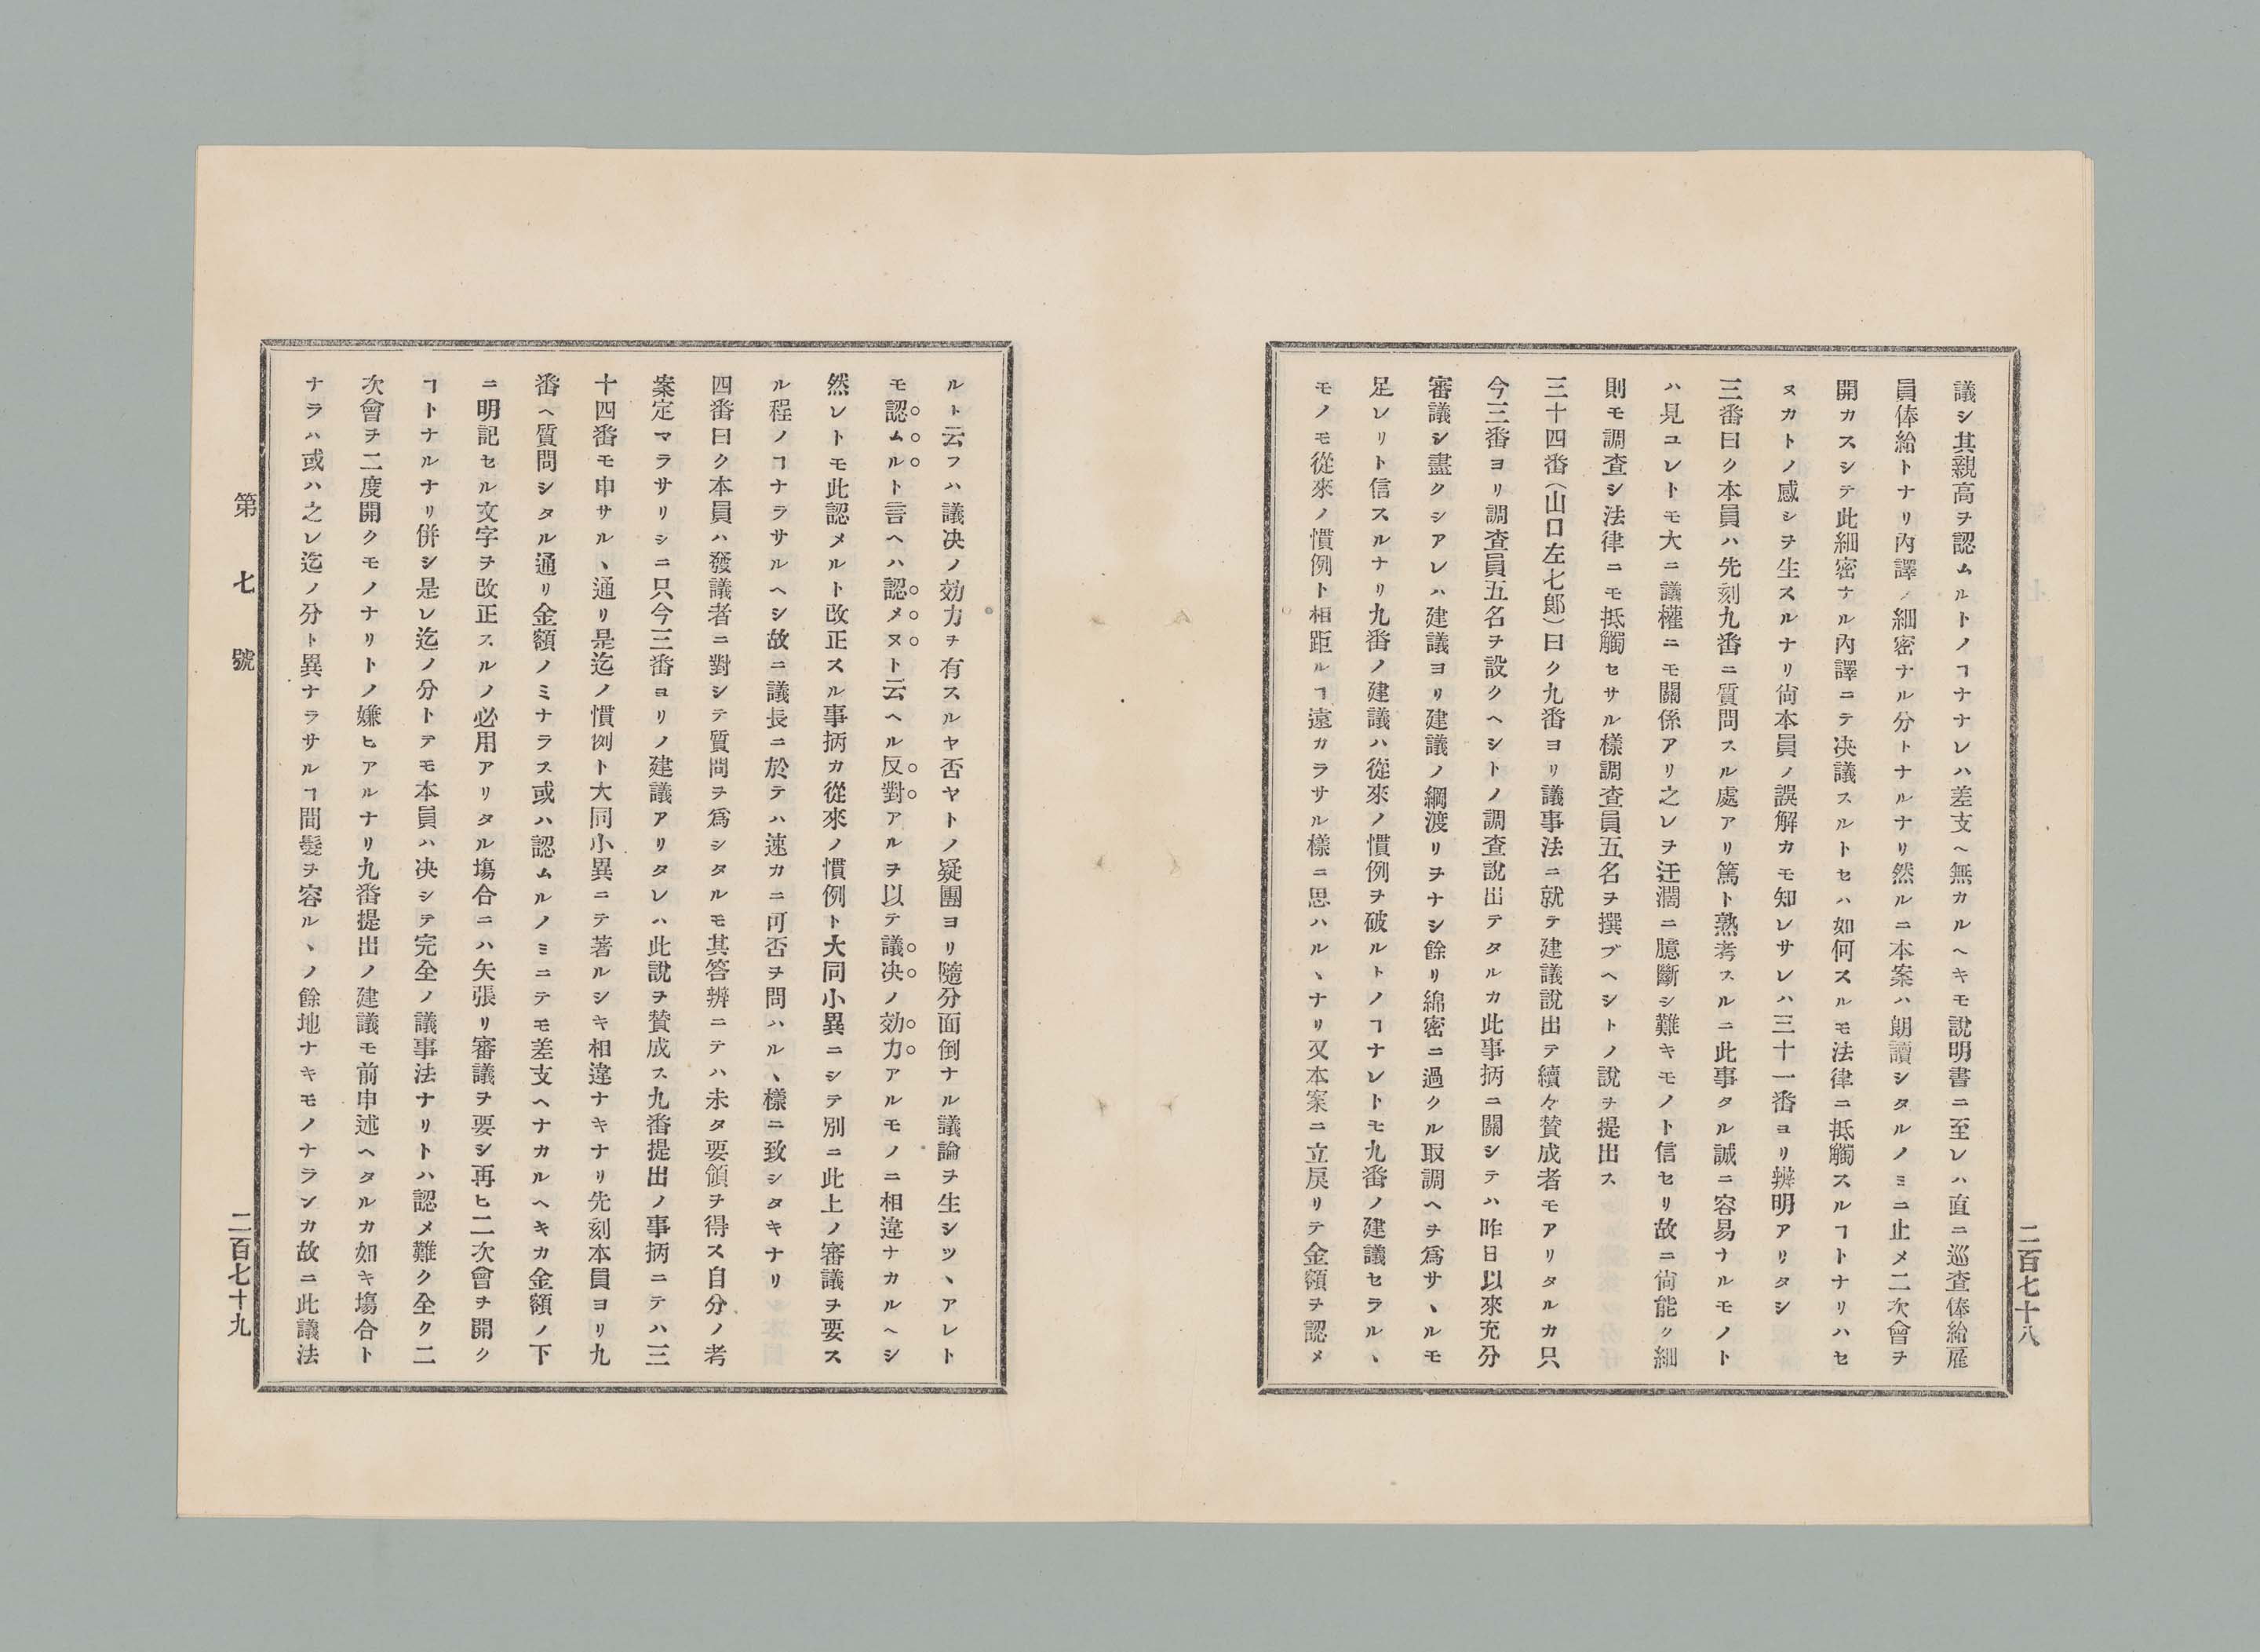 議シ其親高ヲ認ムルトノヿナナレハ差支ヘ無カルヘキモ說明書ニ至レハ直ニ巡査俸給雇
員俸給トナリ內譯ノ細密ナル分トナルナリ然ルニ本案ハ朗讀シタルノミニ止メ二次會ヲ
開カスシテ此細密ナル內譯ニテ决議スルトセハ如何スルモ法律ニ抵觸スルヿトナリハセ
ヌカトノ感シヲ生スルナリ尙本員ノ誤解カモ知レサレハ三十一番ヨリ辨明アリタシ
三番曰ク本員ハ先刻九番ニ質問スル處アリ篤ト熟考スルニ此事タル誠ニ容易ナルモノト
ハ見ユレトモ大ニ議權ニモ關係アリ之レヲ迂濶ニ臆斷シ難キモノト信セリ故ニ尙能ク細
則モ調査シ法律ニモ抵觸セサル樣調查員五名ヲ撰ブヘシトノ說ヲ提出ス
三十四番（山口左七郞）曰ク九番ヨリ議事法ニ就テ建議說出テ續々贊成者モアリタルカ只
今三番ヨリ調査員五名ヲ設クヘシトノ調査說出テタルカ此事柄ニ關シテハ昨日以來充分
審議シ盡クシアレハ建議ヨリ建議ノ綱渡リヲナシ餘リ綿密ニ過クル取調ヘヲ爲サヽルモ
足レリト信スルナリ九番ノ建議ハ從來ノ慣例ヲ破ルトノヿナレトモ九番ノ建議セラルヽ
モノモ從來ノ慣例ト相距ルヿ遠カラサル樣ニ思ハルヽナリ又本案ニ立戾リテ金額ヲ認メ
二百七十八
ルト云フハ議決ノ効力ヲ有スルヤ否ヤトノ疑團ヨリ隨分面倒ナル議論ヲ生シツヽアレト
モ認ムルト言ヘハ認メヌト云ヘル反對アルヲ以テ議决ノ効力アルモノニ相違ナカルヘシ
然レトモ此認メルト改正スル事柄カ從來ノ慣例ト大同小異ニシテ別ニ此上ノ審議ヲ要ス
ル程ノヿナラサルヘシ故ニ議長ニ於テハ速カニ可否ヲ問ハルヽ樣ニ致シタキナリ
四番曰ク本員ハ發議者ニ對シテ質問ヲ爲シタルモ其答辨ニテハ未タ要領ヲ得ス自分ノ考
案定マラサリシニ只今三番ヨリノ建議アリタレハ此說ヲ贊成ス九番提出ノ事柄ニテハ三
十四番モ申サルヽ通リ是迄ノ慣例ト大同小異ニテ著ルシキ相違ナキナリ先刻本員ヨリ九
番ヘ質問シタル通リ金額ノミナラス或ハ認ムルノミニテモ差支ヘナカルヘキカ金額ノ下
ニ明記セル文字ヲ改正スルノ必用アリタル塲合ニハ矢張リ審議ヲ要シ再ヒ二次會ヲ開ク
ヿトナルナリ併シ是レ迄ノ分トテモ本員ハ决シテ完全ノ議事法ナリトハ認メ難ク全ク二
次會ヲ二度開クモノナリトノ嫌ヒアルナリ九番提出ノ建議モ前申述ヘタルカ如キ塲合ト
ナラハ或ハ之レ迄ノ分ト異ナラサルヿ間髮ヲ容ルヽノ餘地ナキモノナランカ故ニ此議法
第七號
二百七十九